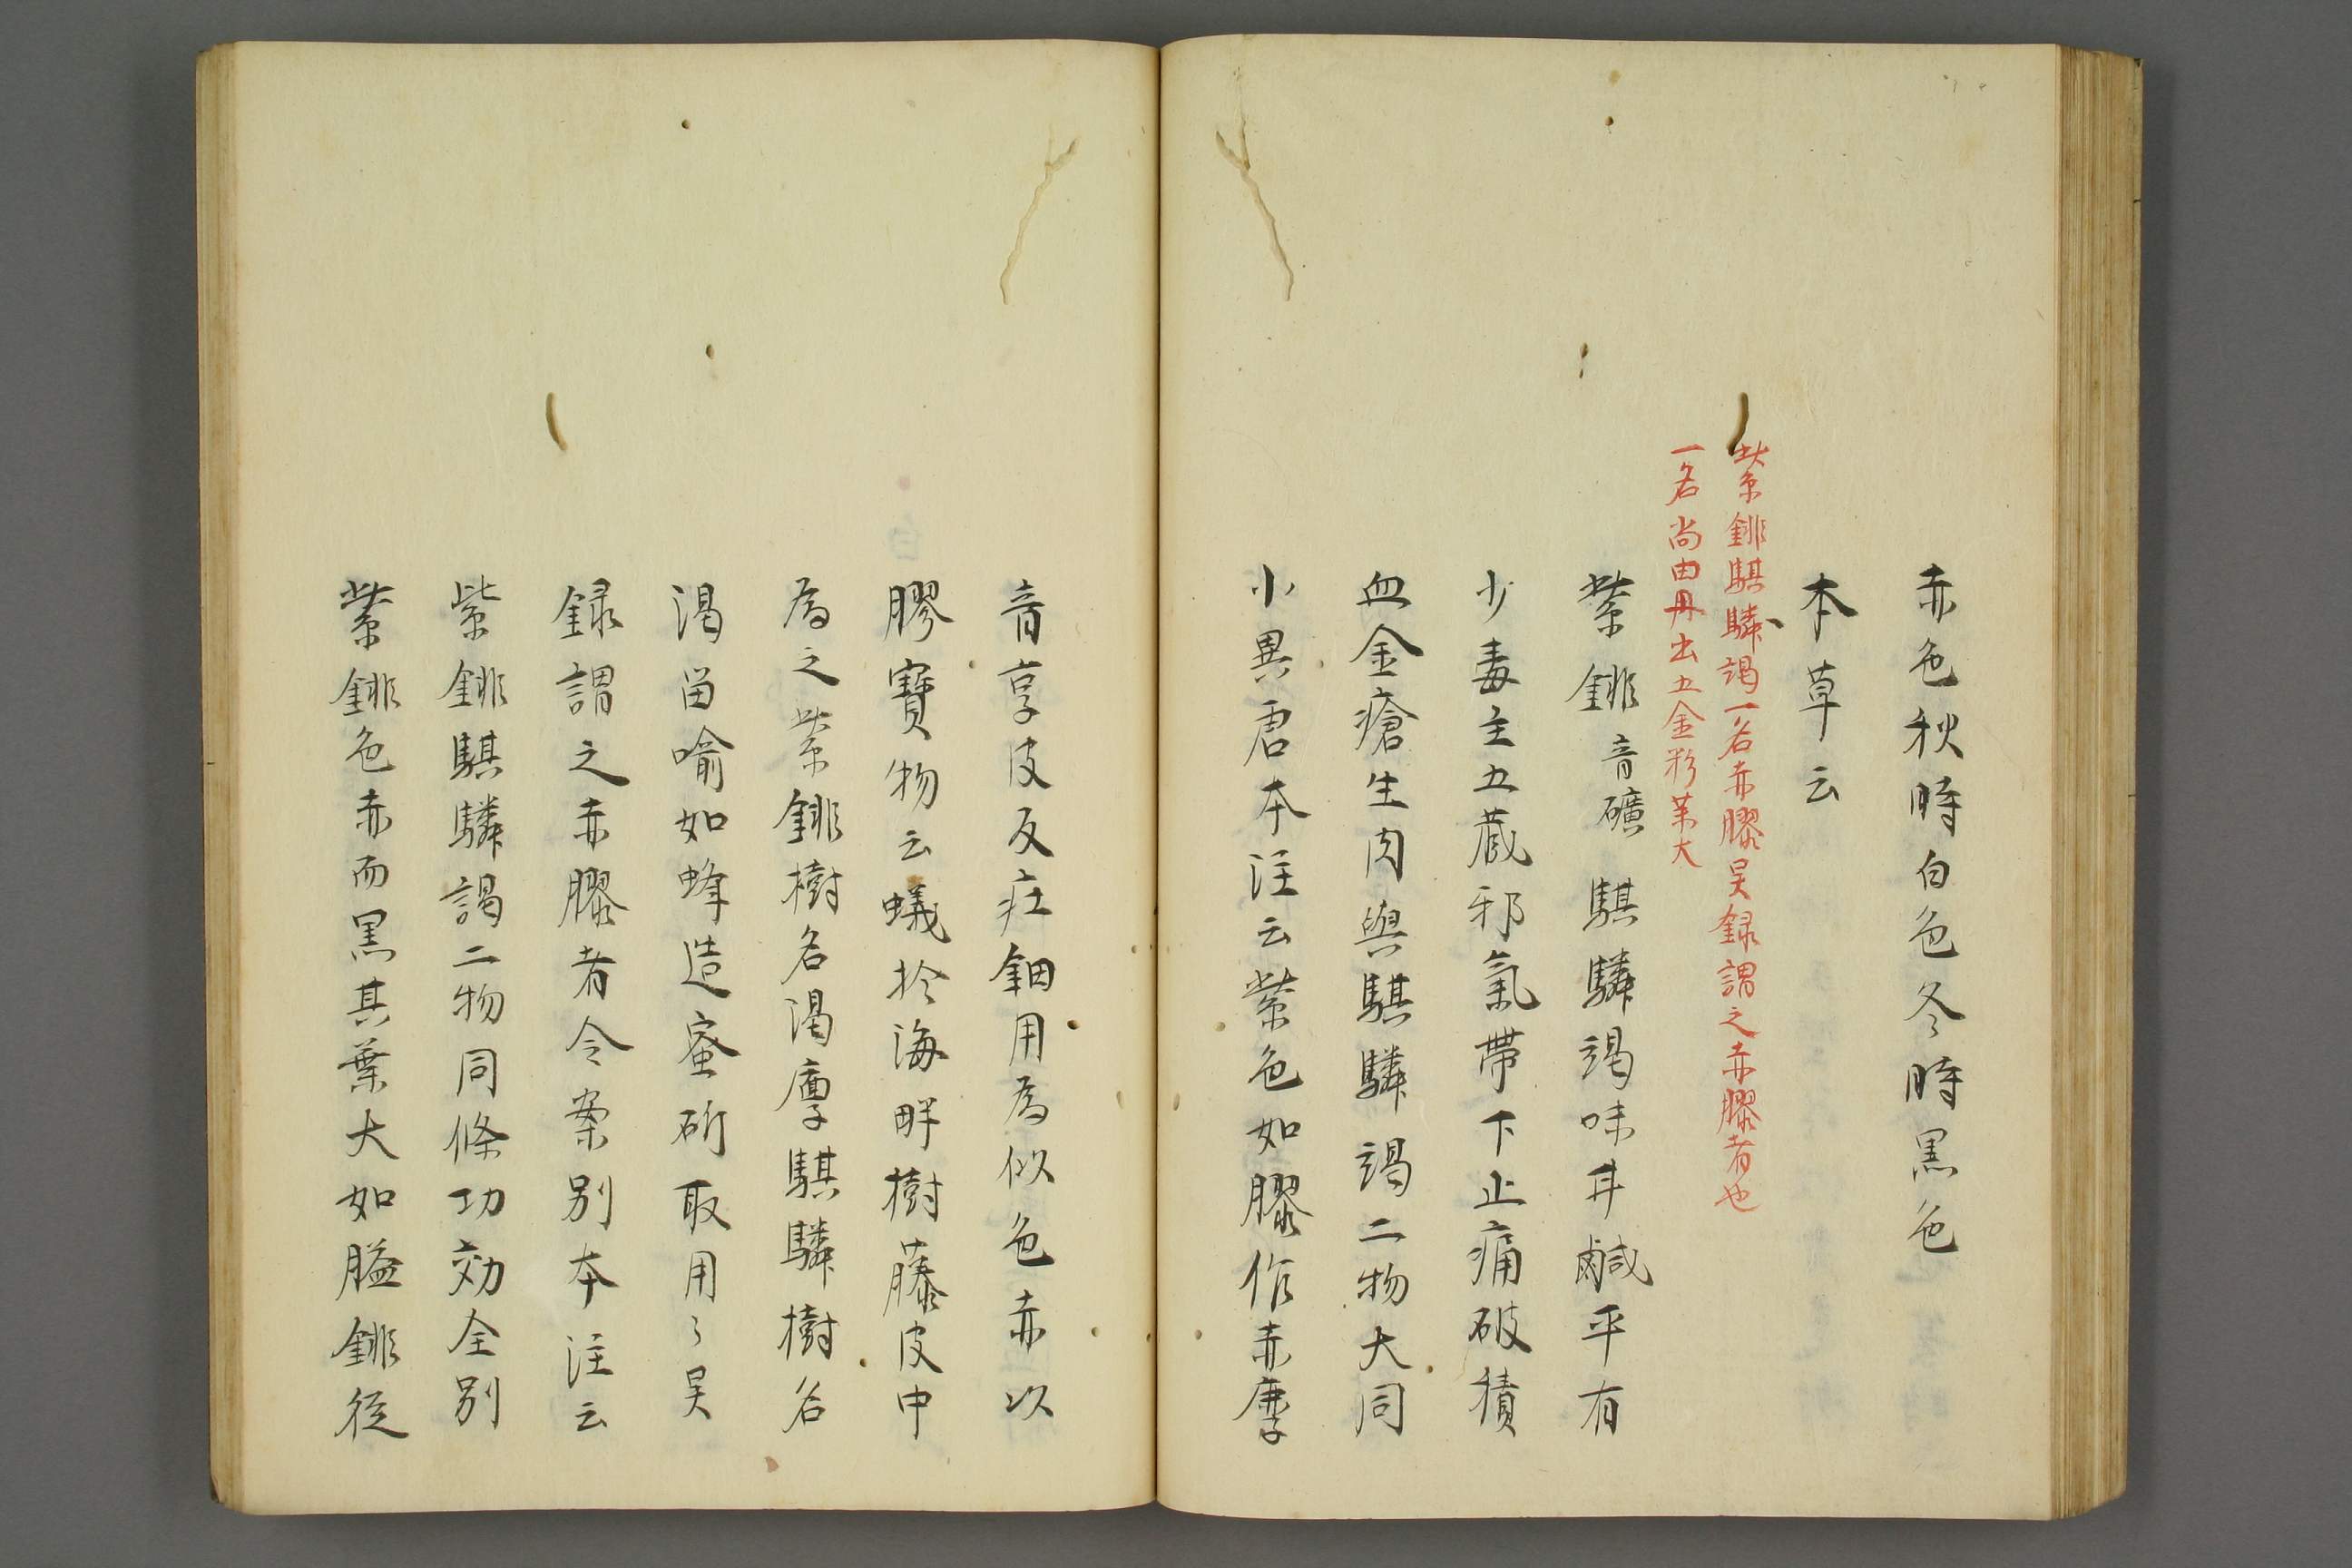 赤色秋時白色冬時黒色
本草云
紫鉚騏驎竭一名赤膠吴録謂之赤膠者也
一名尚由丹出五金粉薬大
紫鉚音礦騏驎竭味甘鹹平有
少毒主五蔵邪氣帶下止痛破積
血金瘡生肉與騏驎竭二物大同
小異唐本注云紫色如膠作赤麖
音享皮及疘鈿用為似色赤以
膠寶物云蟻於海畔樹藤皮中
為之紫鉚樹名渇廩騏驎樹名
渇留喻如蜂造蜜斫取用々吴
録謂之赤膠者今案別本注云
紫鉚騏驎謁二物同條功効全別
紫鉚色赤而黒其葉大如膉鉚従